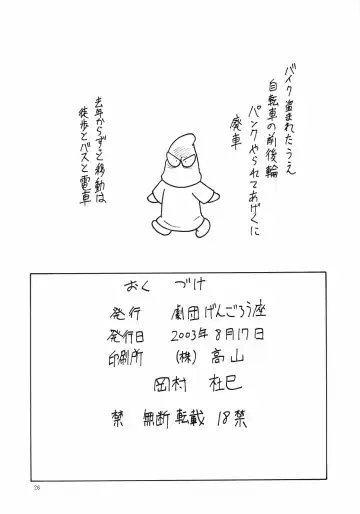 バイク盗まれたうえ
自転車の前後輪
パンクやられてあげくに
廃車
去年からずっと移動は
徒歩とバスと電車
おくづけ
発行 劇団げんごろう座
発行日 2003年8月17日
印刷所 (株) 高山
岡村 杜巳
禁 無断転載 18禁
26